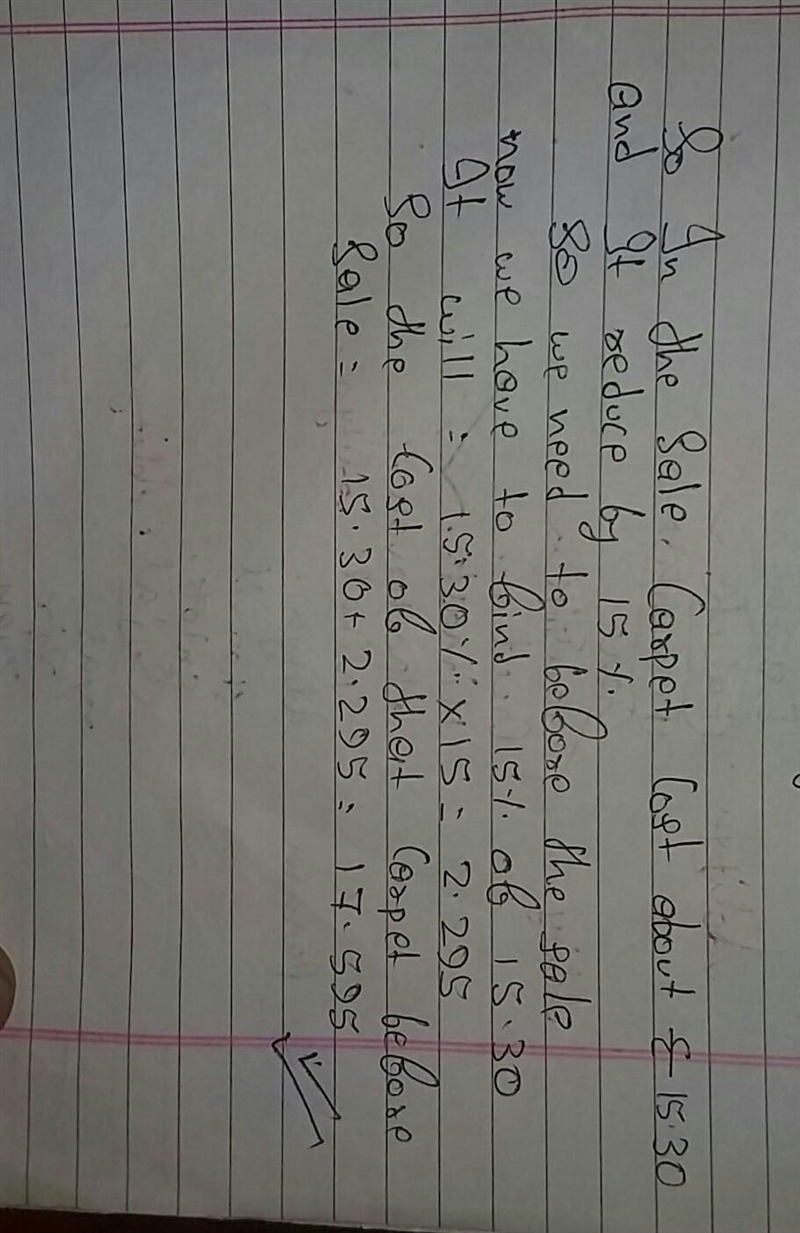 So In the Sale. Carpet Cost about £ 15.30
and It reduce by 15%.
So we need to before the sale
now we have to find 15% of 15.30
It will = 15.30% x 15 = 2.295
So the Cost of that Carpet before
Sale = 15.30 + 2.295 = 17.595